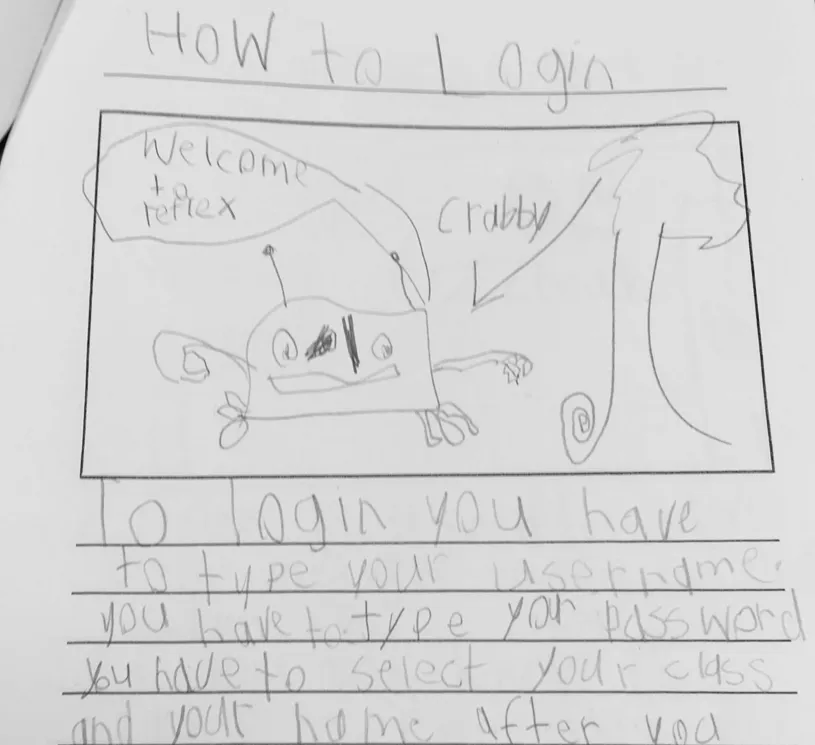 How to Login
Welcome
to
reflex
Crabby
To login you have
to type your username.
you have to type your password
you have to select your class
and your home after you